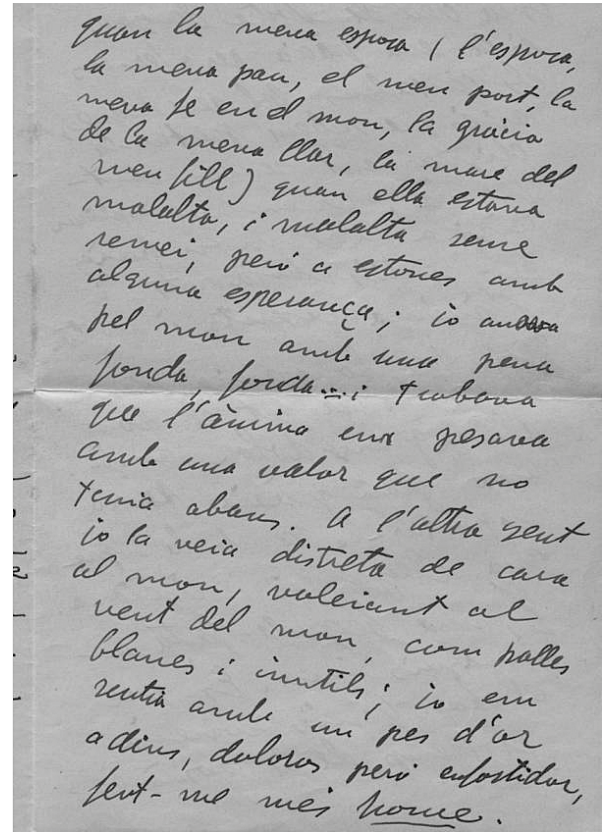 quan la meva esposa (l'esposa,
la meva pau, el meu port, la
meva fe en el mon, la gràcia
de la meva llar, la mare del
meu fill) quan ella estava
malalta, i malalta sense
remei, però a estones amb
alguna esperança; jo anava
pel mon amb una pena
fonda, fonda...i trobava
que l'ànima em pesava
amb una valor que no
tenia abans. A l'altra gent
jo la veia distreta de cara
al mon, voleiant al
vent del mon, com palles
blanes i inutils; jo em
sentia amb un pes d'or
a dins, dolorós però enfortidor,
fent-me més home.